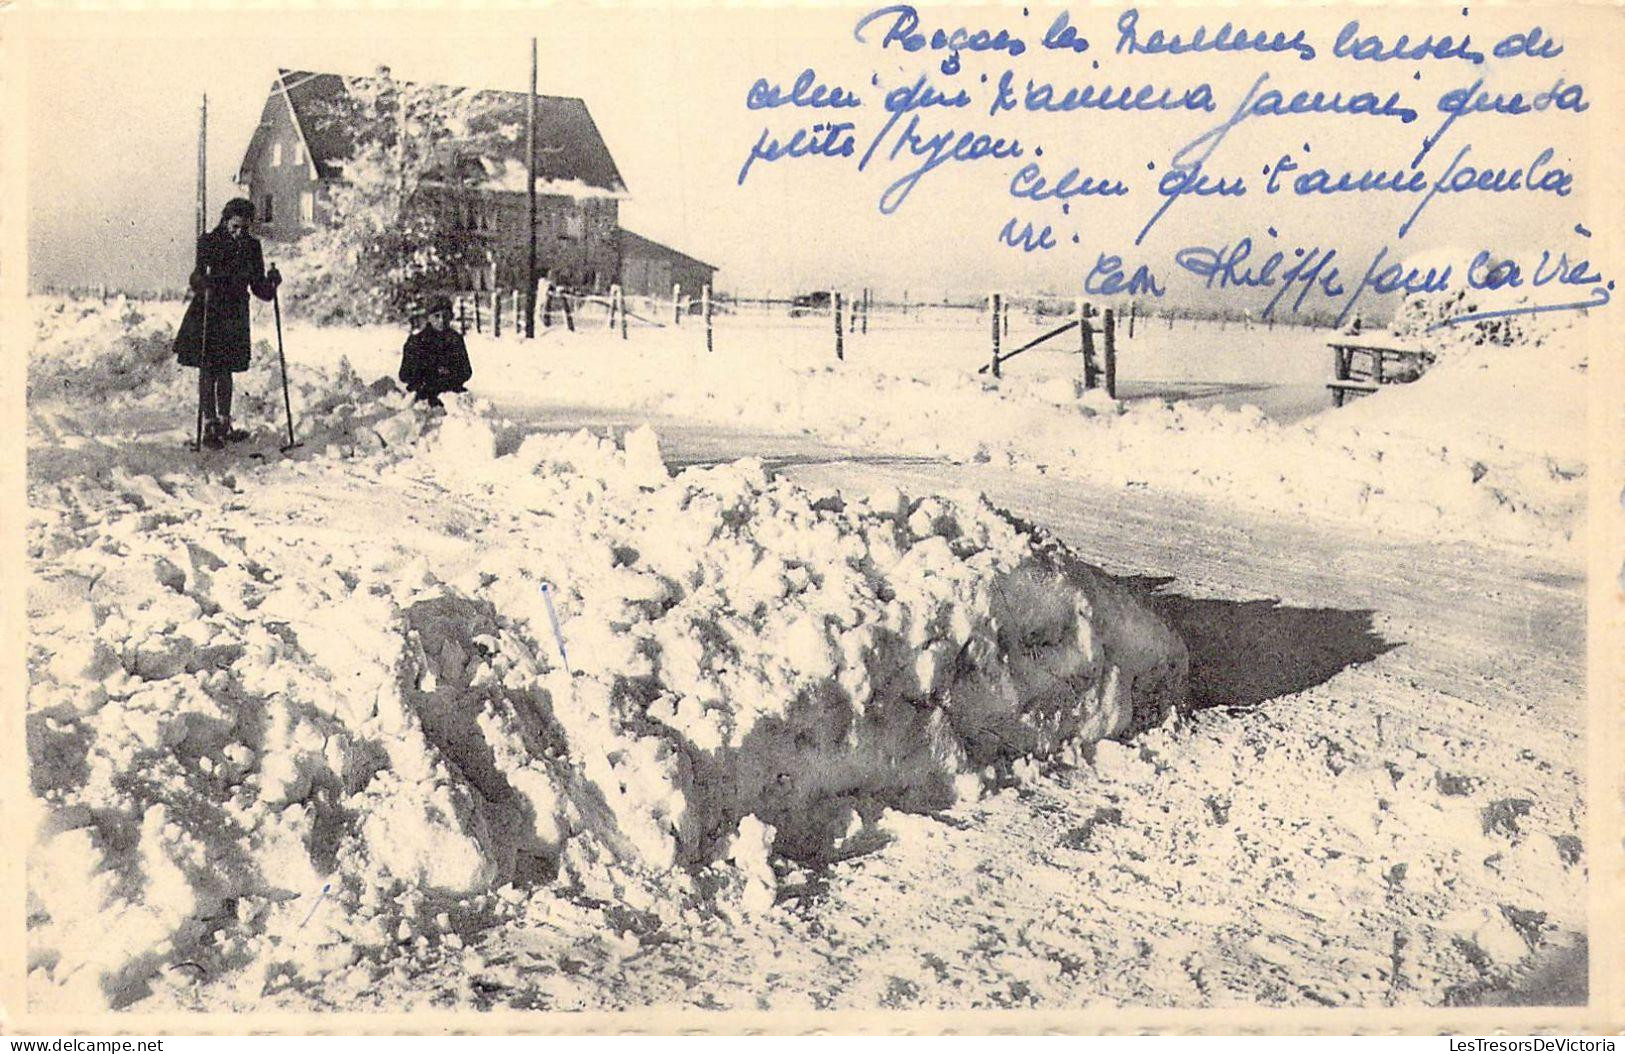 Reçois les Meilleurs baisers de
celui qui n'aimera Jamais que sa
petite
Celui qui t'aime pour la
vie.
Ton Philippe pour la vie.
LesTresorsDeVictoria